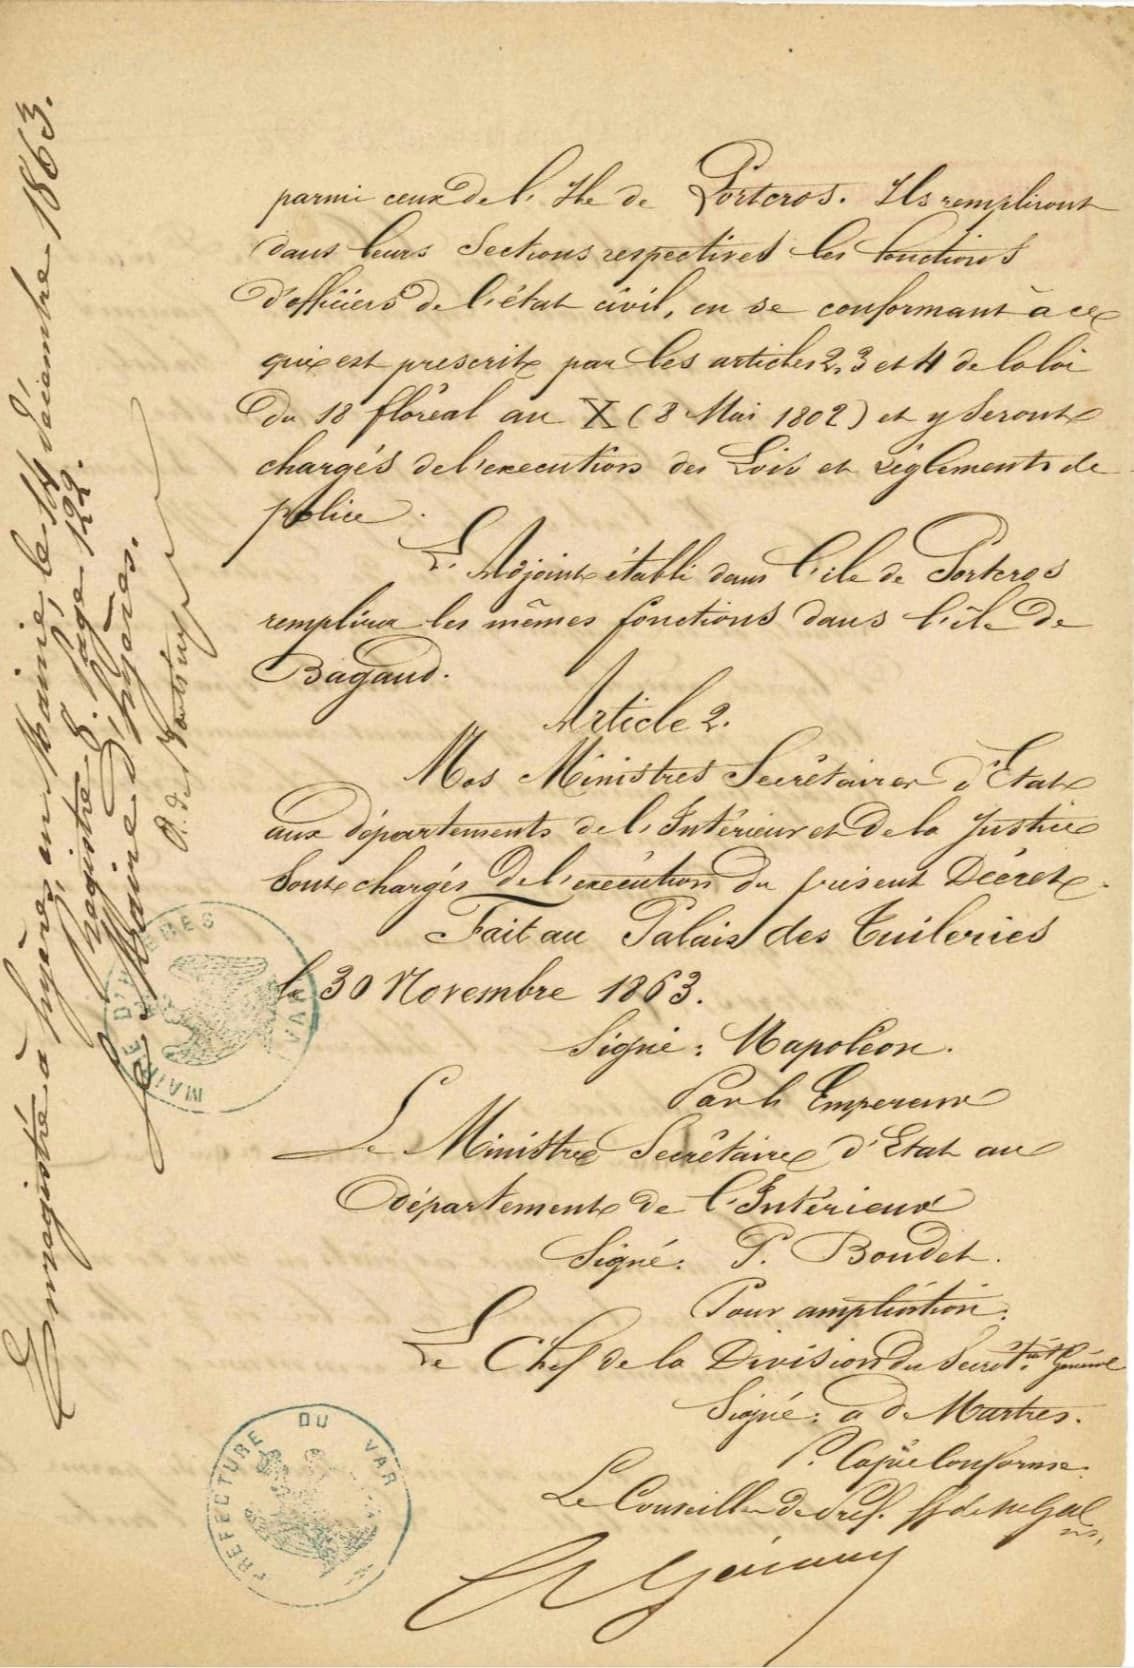 parmi ceux de l'Ile de Portcros. Ils rempliront
dans leurs Sections respectives les fonctions
d'officiers de l'état civil, en se conformant à ce
qui est prescrit par les articles 2, 3 et 4 de la loi
du 18 floréal an X (8 Mai 1802) et y seront
chargés de l'execution des Lois et règlements de
police.
L'Adjoint établi dans l'ile de Portcros
remplira les mêmes fonctions dans l'île de
Bagaud.
Article 2.
Mes Ministres Secrétaires d'Etat
aux départements de l'Intérieur et de la Justice
sont chargés de l'exécution du présent Décret.
Fait au Palais des Tuileries
le 30 Novembre 1863.
Signé: Napoléon.
Par l'Empereur
Le Ministre Secrétaire d'Etat au
département de l'Intérieur
Signé: P. Boudet.
Pour ampliation:
Le Chef de la Division du Secrét.ariat Général
Signé: A de Martres.
Pr. Copie Conforme.
Le Conseiller de Préf.
Enregistré à hyères, en Mairie, le 14 décembre 1863.
registre G. page 122.
Le Maire d'hyères.
MAIRIE D'HYÈRES (VAR)
PREFECTURE DU VAR